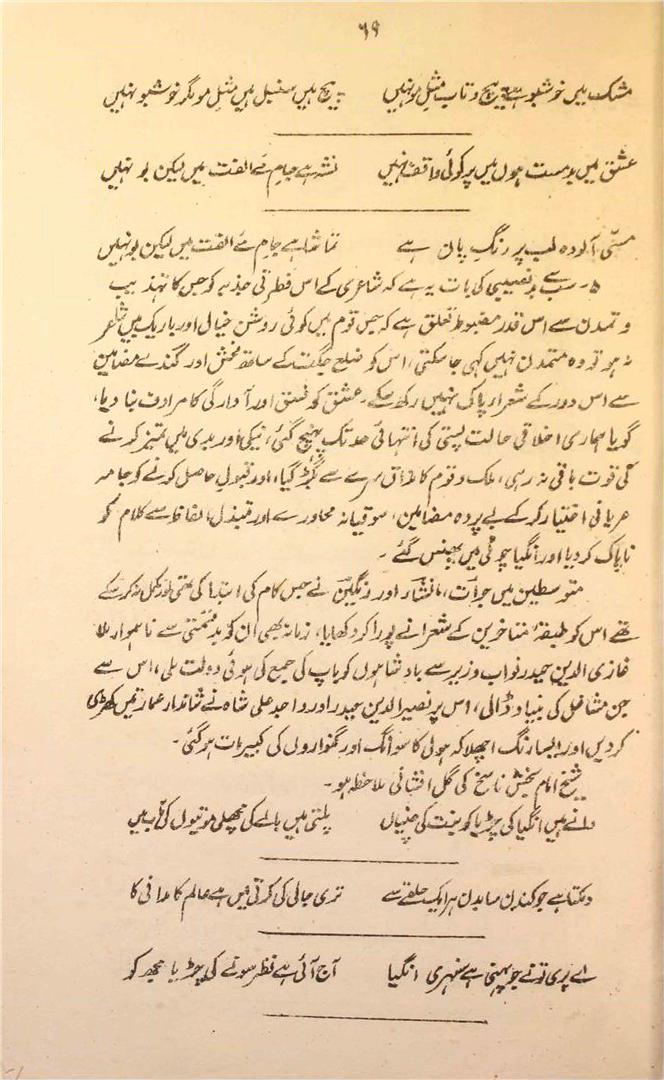 ۶۹
مشک میں خوشبو ہے پیچ و تاب مثلِ مو نہیں پیچ ہیں سنبل میں مثلِ مو مگر خوشبو نہیں
عشق میں بدمست ہوں میں پر کوئی واقف نہیں نشہ ہے جامِ مئے الفت میں لیکن بو نہیں
مسّی آلودہ لب پر رنگِ پان ہے تماشا ہے جامِ مئے الفت میں لیکن بو نہیں
۵۔ سب سے بدنصیبی کی بات یہ ہے کہ شاعری کے اس فطرتی جذبہ کو جس کا تہذیب
و تمدن سے اس قدر مضبوط تعلق ہے کہ جس قوم میں کوئی روشن خیال اور باریک بیں شاعر
نہ ہو تو وہ متمدن نہیں کہی جا سکتی، اس کو ضلع جگت کے ساتھ فحش اور گندے مضامین
سے اس دور کے شعرا پاک نہیں رکھ سکے۔ عشق کو فسق اور آوارگی کا مرادف بنا دیا،
گویا ہماری اخلاقی حالت پستی کی انتہائی حد تک پہنچ گئی، نیکی اور بدی میں تمیز کرنے
کی قوت باقی نہ رہی، ملک و قوم کا مذاق سرے سے بگڑ گیا، اور قبولی حاصل کرنے کو جامہ
عریانی اختیار کر کے بے پردہ مضامین، سوقیانہ محاورے اور مبتذل الفاظ سے کلام کو
ناپاک کر دیا اور انگیا چوٹی میں پھنس گئے۔
متوسطین میں جرأت، انشاء اور رنگین نے جس کام کی ابتدا کی تھی اور مکمل نہ کر سکے
تھے اس کو طبقۂ متاخرین کے شعرا نے پورا کر دکھایا، زمانہ بھی ان کو بدقسمتی سے ناہموار ملا
غازی الدین حیدر نواب وزیر سے بادشاہوں کو باپ کی جمع کی ہوئی دولت ملی، اس سے
جن مشاغل کی بنیاد ڈالی، اس پر نصیر الدین حیدر اور واجد علی شاہ نے شاندار عمارتیں کھڑی
کر دیں اور ایسا رنگ اچھلا کہ ہولی کا سوانگ اور گنواروں کی کبیر مات ہو گئی۔
شیخ امام بخش ناسخ کی گل افشانی ملاحظہ ہو۔
دانے ہیں انگیا کی چڑیا کو بنت کی چنیاں پلتی ہیں بالے کی مچھلی موتیوں کی آب میں
دمکتا ہے جو کندن سا بدن ہر ایک حلقے سے تری جالی کی کرتی میں ہے عالم کامدانی کا
اے پری تو نے جو پہنی ہے سنہری انگیا آج آئی ہے نظر سونے کی چڑیا مجھ کو